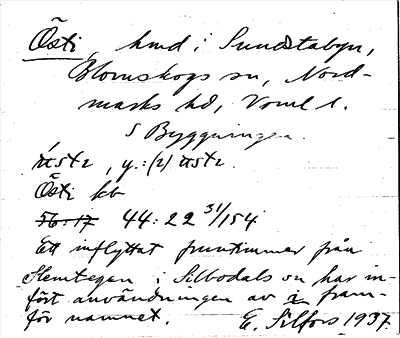 Östi, hmd i Sundstabyn,
Blomskogs sn, Nord-
marks hd, Vrml l.
S Byggningen.
y.: (2)
Östi kb
56:17 44:22 31/154
Ett inflyttat fruntimmer från
Slemtegen i Silbodals sn har in-
fört användningen av i fram-
för namnet. E. Silfors 1937.